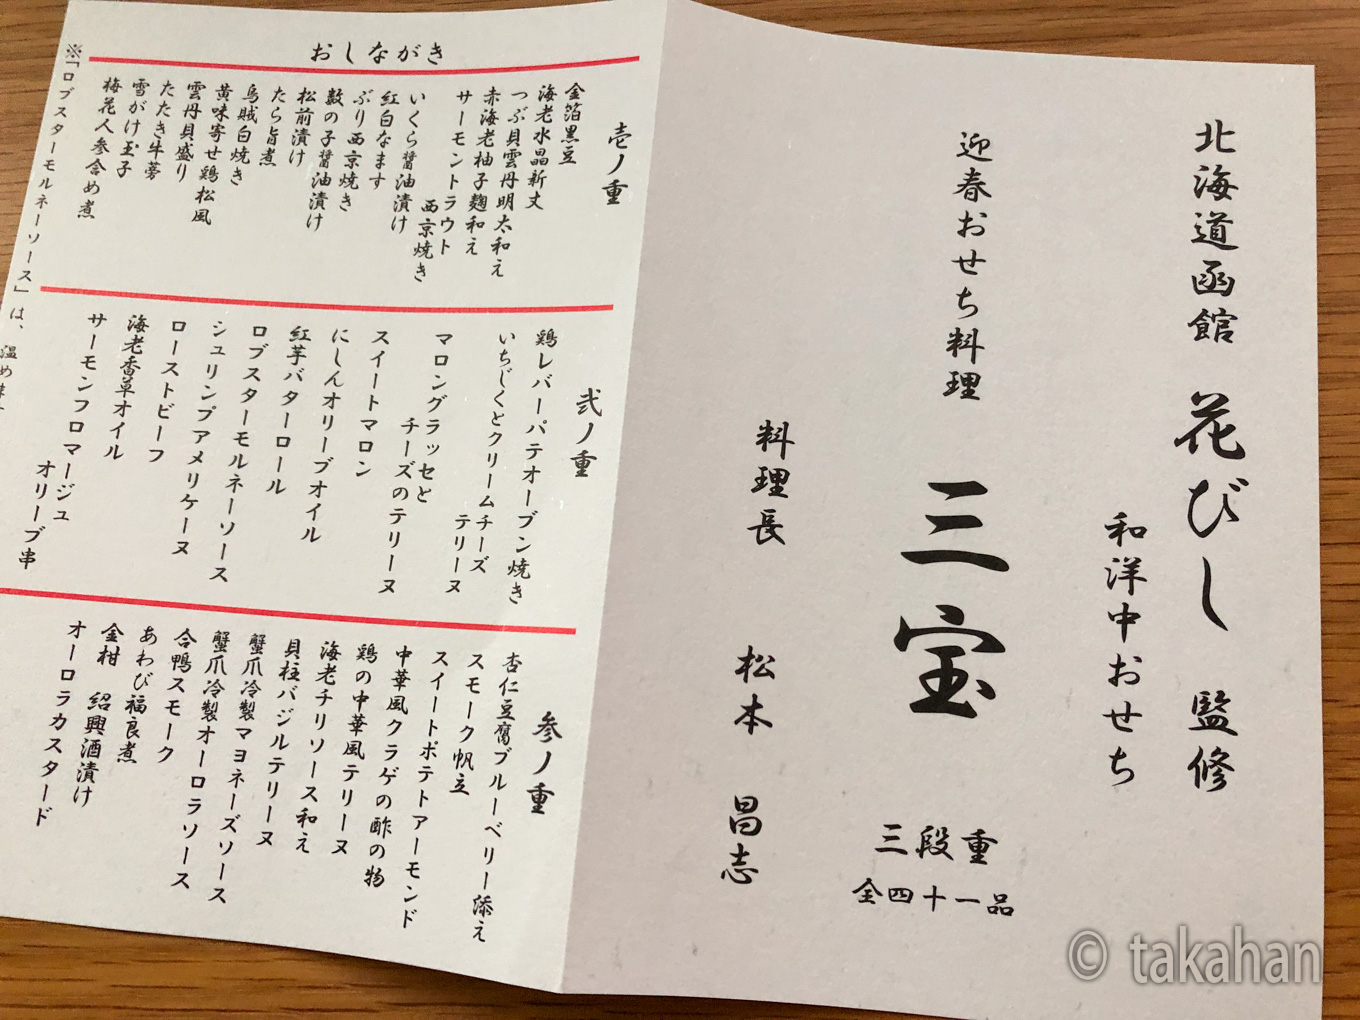 北海道函館 花びし 監修
和洋中おせち
迎春おせち料理 三宝 三段重
全四十一品
料理長 松本 昌志
おしながき
壱ノ重
金箔黒豆
海老水晶新丈
つぶ貝雲丹明太和え
赤海老柚子麹和え
サーモントラウト
西京焼き
いくら醤油漬け
紅白なます
ぶり西京焼き
数の子醤油漬け
松前漬け
たら旨煮
烏賊白焼き
黄味寄せ鶏松風
雲丹貝盛り
たたき牛蒡
雪がけ玉子
梅花人参含め煮
弐ノ重
鶏レバーパテオーブン焼き
いちじくとクリームチーズ
テリーヌ
マロングラッセと
チーズのテリーヌ
スイートマロン
にしんオリーブオイル
紅芋バターロール
ロブスターモルネーソース
シュリンプアメリケーヌ
ローストビーフ
海老香草オイル
サーモンフロマージュ
オリーブ串
参ノ重
杏仁豆腐ブルーベリー添え
スモーク帆立
スイートポテトアーモンド
中華風クラゲの酢の物
鶏の中華風テリーヌ
海老チリソース和え
貝柱バジルテリーヌ
蟹爪冷製マヨネーズソース
蟹爪冷製オーロラソース
合鴨スモーク
あわび福良煮
金柑 紹興酒漬け
オーロラカスタード
※「ロブスターモルネーソース」は、温め
© takahan